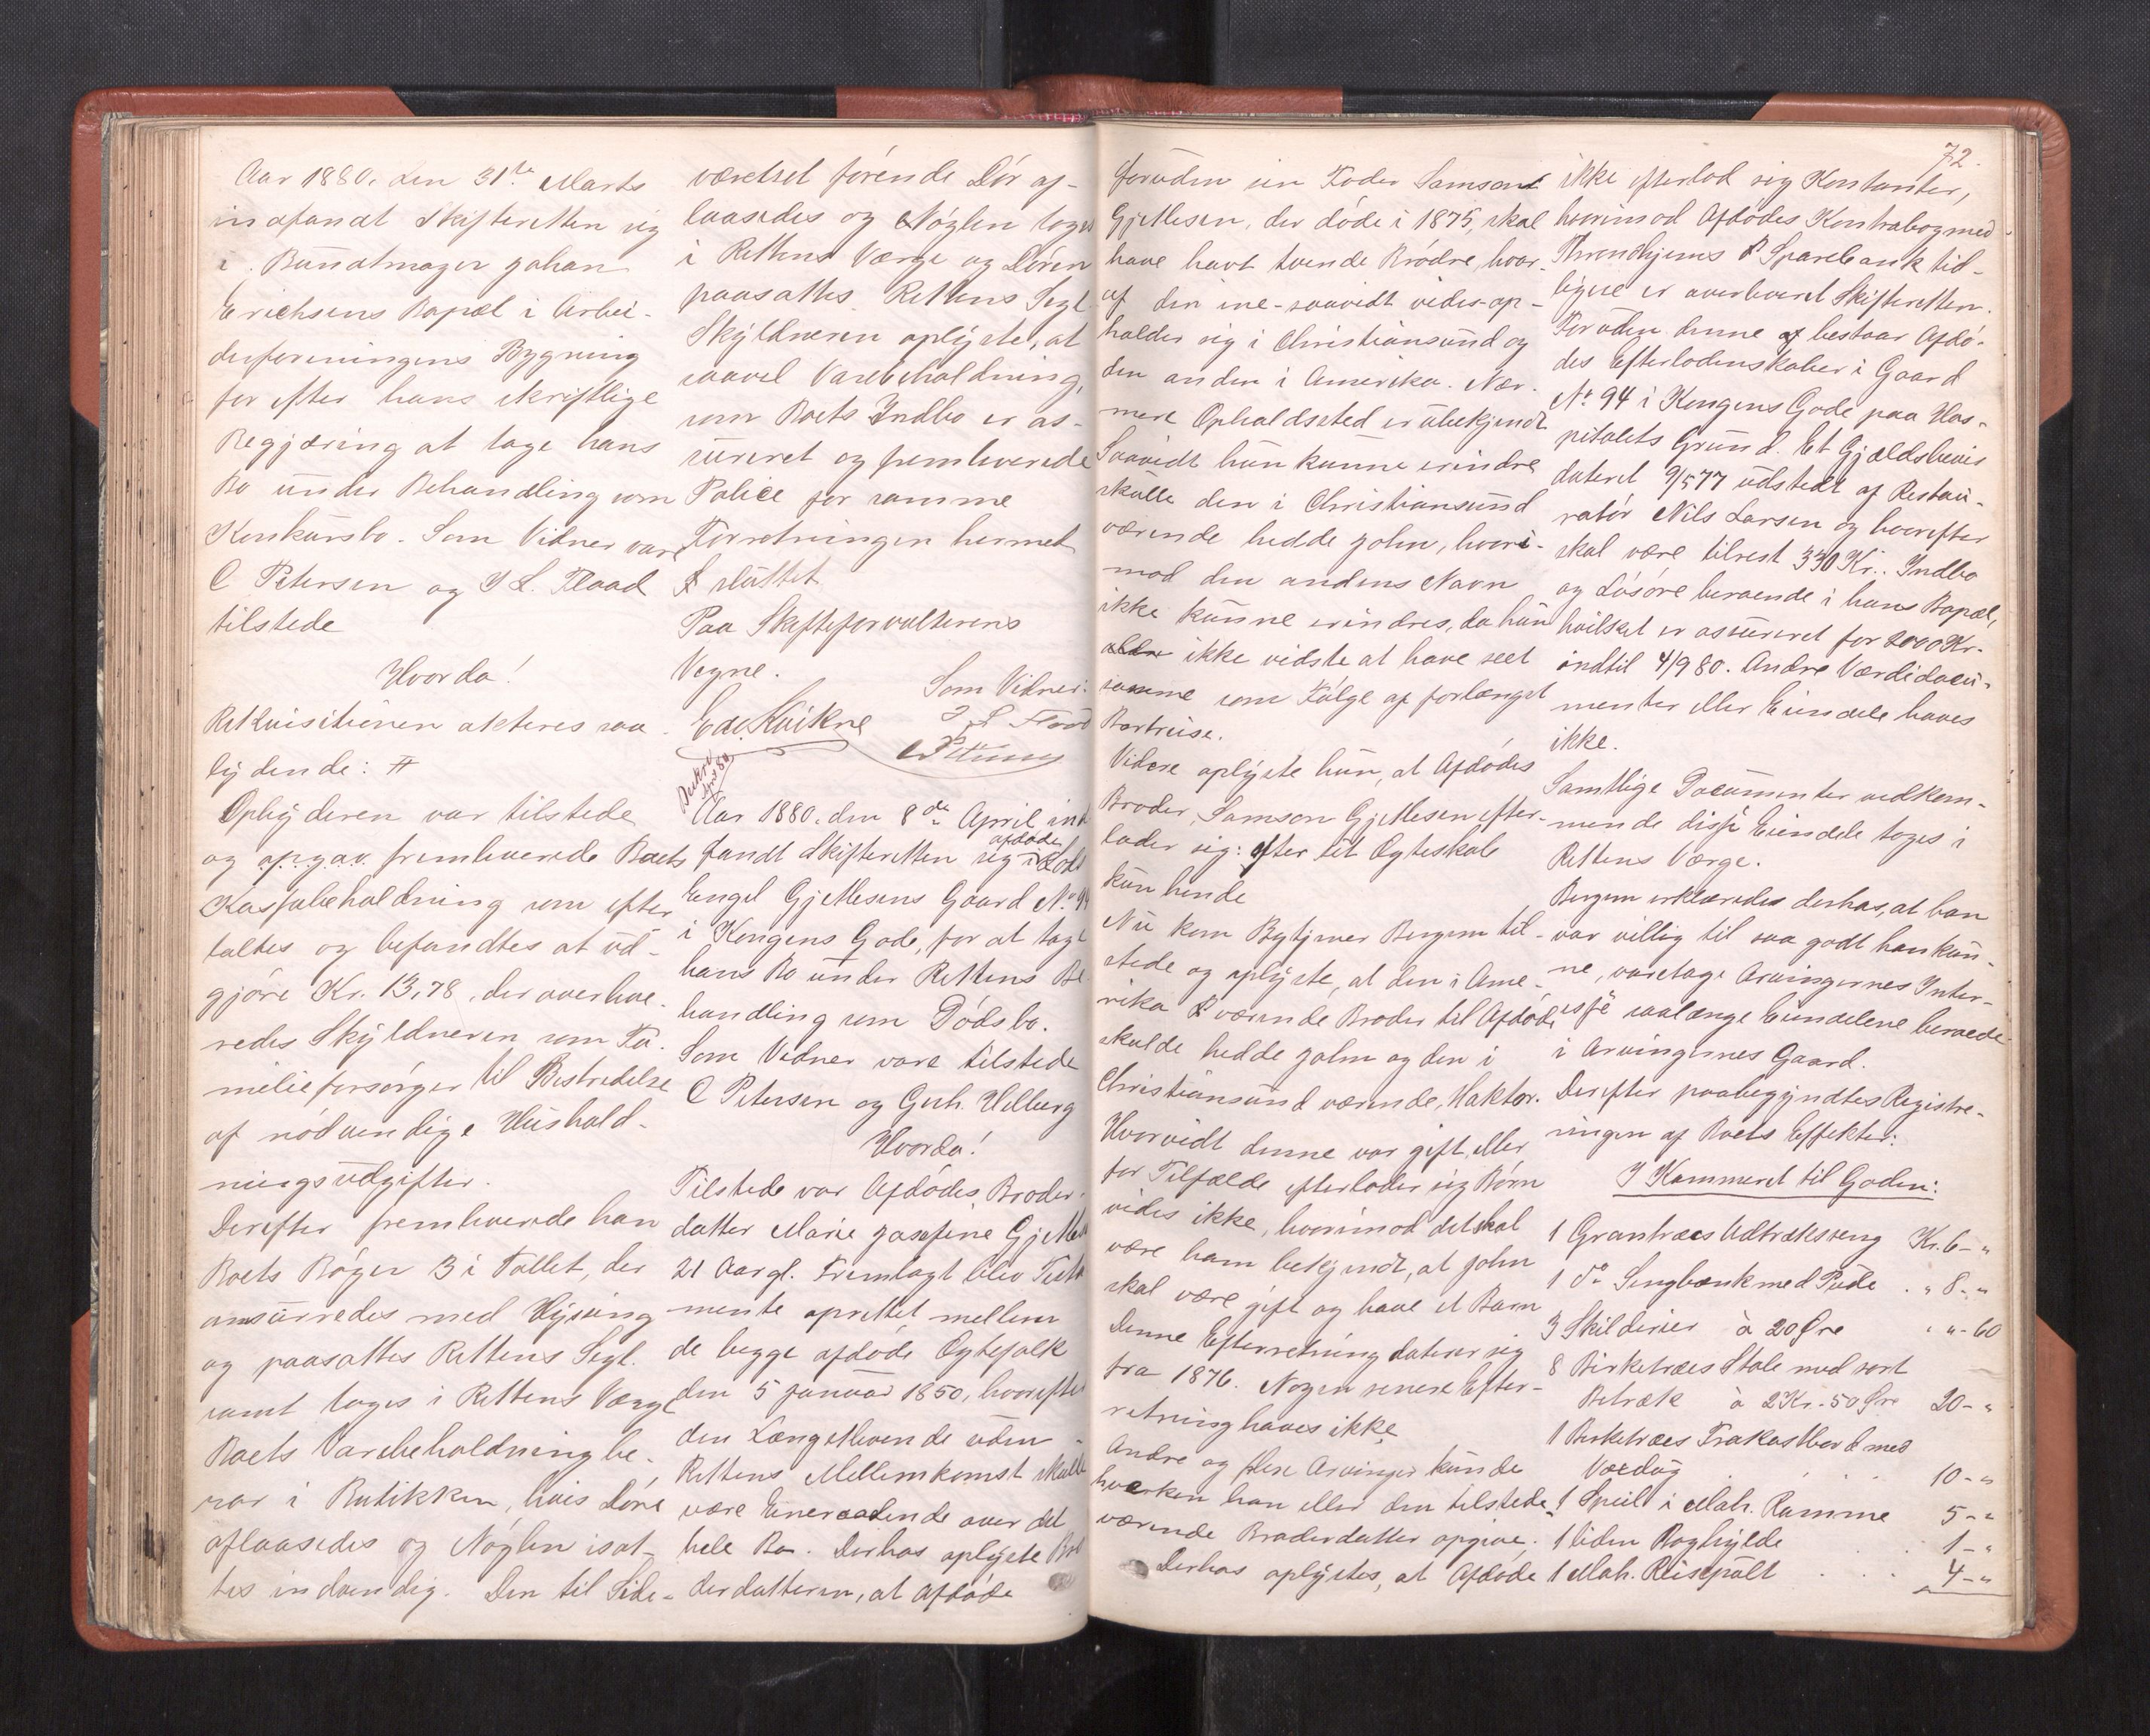 Aar 1880. den 31te Marts
indfandt Skifteretten sig
i Bundtmager Johan
Erichsens Bopæl i Arbei-
derforeningens Bygning
for efter hans skriftlige
Begjæring at tage hans
Bo under Behandling som
Konkursbo. Som Vidner vare
C Petersen og I L. Flaad
tilstede
Hvorda!
Rekvisitionen akteres saa
lydende: #
Opbyderen var tilstede
og opgav fremleverede Boets
Kassabeholdning som efter
taltes og befandtes at ud-
gjøre Kr. 13,78, der overleve-
redes Skyldneren som Fa-
milieforsørger til Bestridelse
af nødvendige Hushold-
ningsudgifter.
Derefter fremleverede han
Boets Bøger 3 i Tallet, der
omsurredes med Hysing
og paasattes Rettens Segl.
samt toges i Rettens Værge
Boets Varebeholdning be-
ror i Butikken, hvis Døre
aflaasedes og Nøglen isat-
tes indvendig. Den til Side-
værelset førende Dør af-
laasedes og Nøglen toges
i Rettens Værge og Døren
paasattes Rettens Segl
Skyldneren oplyste, at
saavel Varebeholdning,
som Boets Indbo er as-
sureret og fremleverede
Police for samme
Forretningen hermed
sluttet
Paa Skifteforvalterens
Vegne.
Som Vidner:
Edv. Kvikne
I L Flaad
C Petersen
Aar 1880. den 8de April ind
fandt Skifteretten sig i afdøde
Engel Gjetlesens Gaard No 94
i Kongens Gade, for at tage
hans Bo under Rettens Be
handling som Dødsbo.
Som Vidner vare tilstede
C Petersen og Gerh. Helberg
Hvorda!
Tilstede var Afdødes Broder-
datter Marie Josefine Gjetlesen
21 Aar gl. Fremlagt blev Testa
mente oprettet mellem
de begge afdøde Ægtefolk
den 5 Januar 1850, hvorefter
den Længstlevende uden
Rettens Mellemkomst skulle
være Eneraadende over det
hele Bo. Derhos oplyste Bro
derdatteren, at Afdøde
72.
foruden sin Fader Samson
Gjetlesen, der døde i 1875, skal
have havt tvende Brødre, hvor-
af den ene - saavidt vides - op-
holder sig i Christiansund og
den anden i Amerika. Nær-
mere Opholdssted er ubekjendt
Saavidt hun kunne erindre
skulle den i Christiansund
værende hedde John, hvori-
mod den andens Navn
ikke kunne erindres, da hun
ikke vidste at have seet
samme som Følge af forlængst
Bortreise.
Videre oplyste hun, at Afdødes
Broder, Samson Gjetlesen efter-
lader sig: efter sit Ægteskab
kun hende
Nu kom Bytjener Bergem til-
stede og oplyste, at den i Ame-
rika værende Broder til Afdøde
skulde hedde John og den i
Christiansund værende, Haktor.
Hvorvidt denne var gift, eller
for Tilfælde efterlader sig Børn
vides ikke, hvorimod det skal
være ham bekjendt, at John
skal være gift og have et Barn
Denne Efterretning daterer sig
fra 1876. Nogen senere Efter-
retning haves ikke
Andre og flere Arvinger kunde
hverken han eller den tilstede-
værende Broderdatter opgive.
Derhos oplystes, at Afdøde
ikke efterlod sig Kontanter,
hvorimod Afdødes Kontrabog med
Throndhjems Sparebank tid-
ligere er overleveret Skifteretten.
Foruden denne bestaar Afdø-
des Efterladenskaber i Gaard
No 94 i Kongens Gade paa Hos-
pitalets Grund. Et Gjældsbevis
dateret 9/5 77 udstedt af Restau-
ratør Nils Larsen og hvorefter
skal være tilrest 330 Kr. Indbo
og Løsøre beroende i hans Bopæl,
hvilket er assureret for 2000 Kr.
indtil 4/9 80. Andre Værdidocu-
menter eller Eiendele haves
ikke.
Samtlige Documenter vedkom-
mende disse Eiendele toges i
Rettens Værge.
Bergem erklærede derhos, at han
var villig til saa godt han kun-
ne, varetage Arvingernes Inter-
esse saalænge Eiendelene beroede
i Arvingernes Gaard.
Derefter paabegyndtes Registre-
ringen af Boets Effekter:
I Kammeret til Gaden:
1 Grantræes Udtræksseng Kr. 6 - "
1 do Sengbænk med Pude " 8 - "
3 Skilderier à 20 Øre " " - 60
8 Birketræes Stole med sort
Betræk à 2 Kr. 50 Øre 20 - "
1 Birketræes Frokostbord med
Voxdug 10 - "
1 Speil i Mah. Ramme 5 - "
1 liden Boghylde 1 - "
1 Mah. Reisepult 4 - "